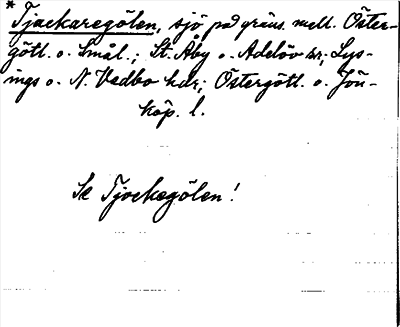 * Tjackaregölen, sjö på gräns. mell. Öster-
götl. o. Smål.; St. Åby o. Adelöv snr; Lys-
ings o. N. Vedbo hdr; Östergötl. o. Jön-
köp. l.
Se Tjockegölen!